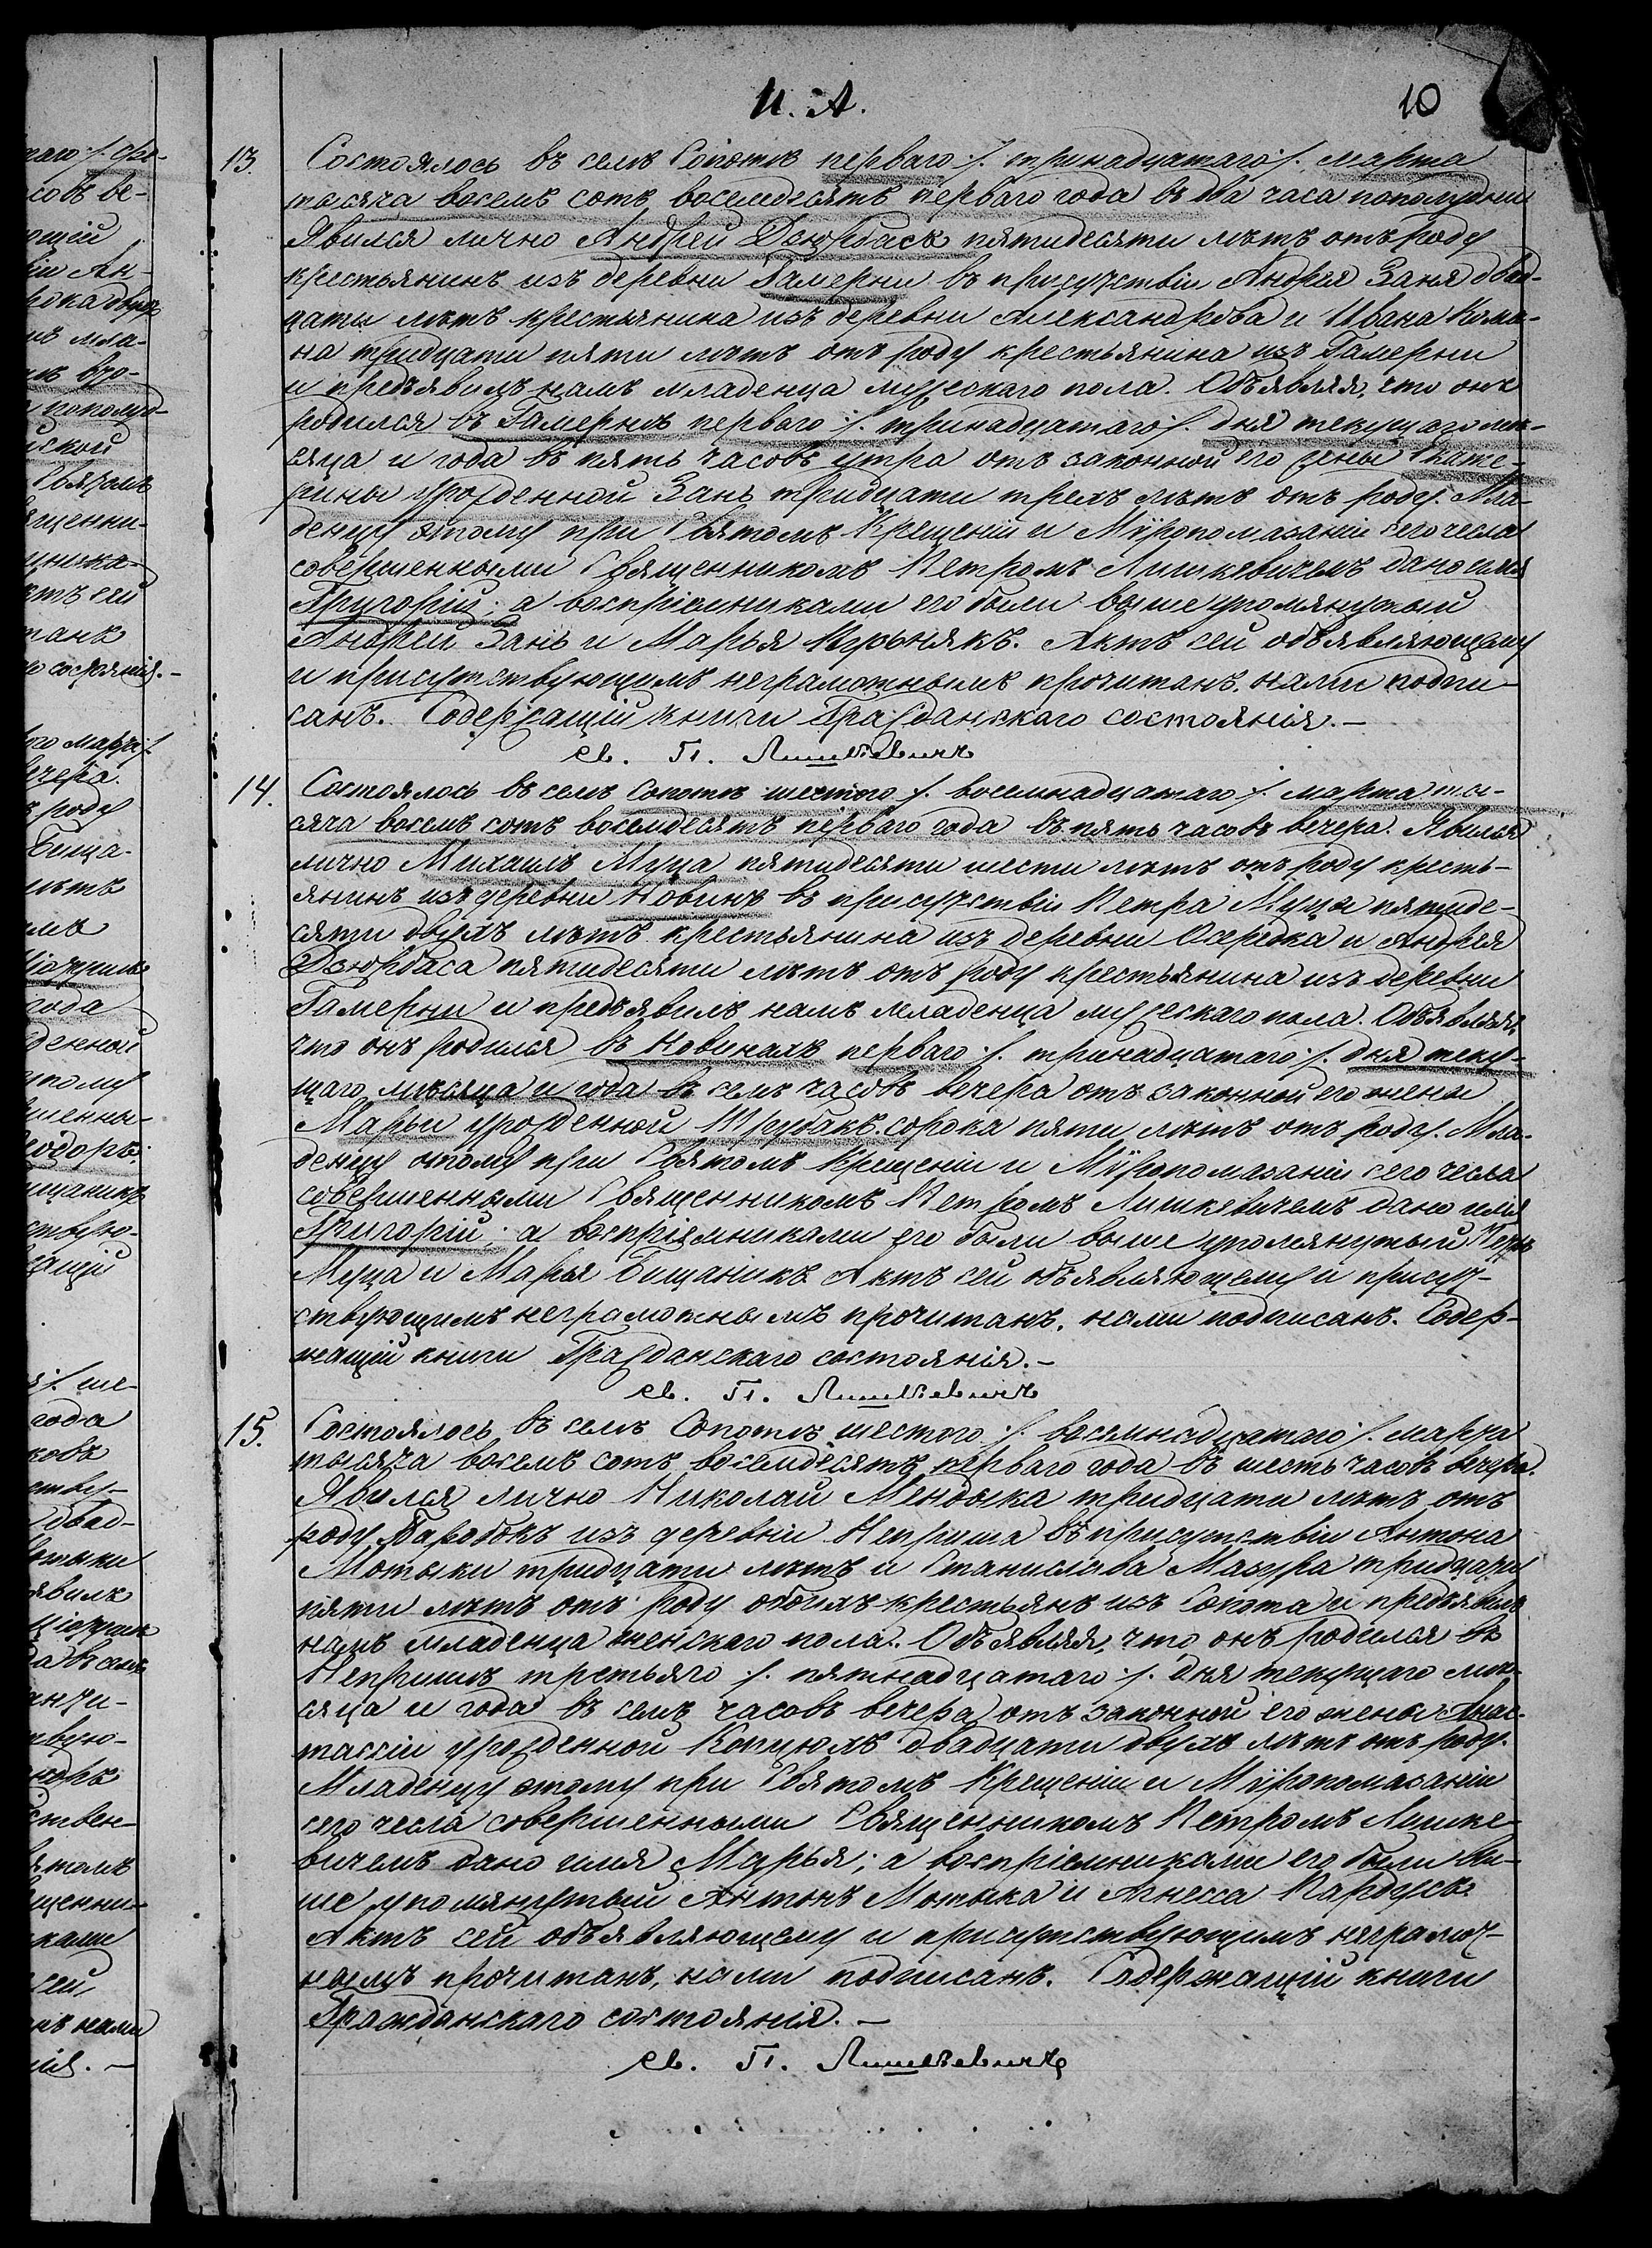 И. А.
10
13. Состоялось въ селѣ Сопотѣ перваго /. тринадцатаго /. марта
тысяча восемь сотъ восемдесятъ перваго года въ два часа пополудни
Явился лично Андрей Дзюрбасъ пятидесяти лѣтъ отъ роду
крестьянинъ изъ деревни Гамерни въ присутствіи Андрея Заня двад-
цати лѣтъ крестьянина изъ деревни Александрова и Ивана Кома-
на тридцати пяти лѣтъ отъ роду крестьянина изъ Гамерни
и предъявилъ намъ младенца мужескаго пола. Объявляя, что онъ
родился въ Гамернѣ перваго /. тринадцатаго /. дня текущаго мѣ-
сяца и года въ пять часовъ утра отъ законной его жены Екате-
рины урожденной Зань тридцати трехъ лѣтъ отъ роду. Мла-
денцу этому при Святомъ Крещеніи и Мѵропомазаніи сего числа
совершенными Священникомъ Петромъ Лишкевичемъ дано имя
Григорій; а воспріемниками его были выше упомянутый
Андрей Зань и Марья Крынякъ. Актъ сей объявляющему
и присутствующимъ неграмотнымъ прочитанъ, нами подпи-
санъ. Содержащій книги Гражданскаго состоянія. —
Св. П. Лишкевичъ
14. Состоялось въ селѣ Сопотѣ шестого /. восемнадцатаго /. марта ты-
сяча восемь сотъ восемдесятъ перваго года въ пять часовъ вечера. Явился
лично Михаилъ Муца пятидесяти шести лѣтъ отъ роду кресть-
янинъ изъ деревни Новинъ въ присутствіи Петра Муцы пятиде-
сяти двухъ лѣтъ крестьянина изъ деревни Осередка и Андрея
Дзюрбаса пятидесяти лѣтъ отъ роду крестьянина изъ деревни
Гамерни и предъявилъ намъ младенца мужескаго пола. Объявляя,
что онъ родился въ Новинахъ перваго /. тринадцатаго /. дня теку-
щаго мѣсяца и года въ семь часовъ вечера отъ законной его жены
Марьи урожденной Шрубакъ сорока пяти лѣтъ отъ роду. Мла-
денцу этому при Святомъ Крещеніи и Мѵропомазаніи сего числа
совершенными Священникомъ Петромъ Лишкевичемъ дано имя
Григорій; а воспріемниками его были выше упомянутый Петръ
Муца и Марья Бищаникъ. Актъ сей объявляющему и присут-
ствующимъ неграмотнымъ прочитанъ, нами подписанъ. Содер-
жащій книги Гражданскаго состоянія. —
Св. П. Лишкевичъ
15. Состоялось въ селѣ Сопотѣ шестого /. восемнадцатаго /. марта
тысяча восемь сотъ восемдесятъ перваго года въ шесть часовъ вечера.
Явился лично Николай Мендыка тридцати лѣтъ отъ
роду Паробокъ изъ деревни Неприша въ присутствіи Антона
Мотыки тридцати лѣтъ и Станислава Мазура тридцати
пяти лѣтъ отъ роду обоихъ крестьянъ изъ Сопота и предъявилъ
намъ младенца женскаго пола. Объявляя, что онъ родился въ
Непришѣ третьяго /. пятнадцатаго /. дня текущаго мѣ-
сяца и года въ семь часовъ вечера отъ законной его жены Анас-
тассіи урожденной Копцюхъ двадцати двухъ лѣтъ отъ роду.
Младенцу этому при Святомъ Крещеніи и Мѵропомазаніи
сего числа совершенными Священникомъ Петромъ Лишке-
вичемъ дано имя Марья; а воспріемниками его были вы-
ше упомянутый Антонъ Мотыка и Агнесса Пардусъ.
Актъ сей объявляющему и присутствующимъ неграмот-
нымъ прочитанъ, нами подписанъ. Содержащій книги
Гражданскаго состоянія. —
Св. П. Лишкевичъ